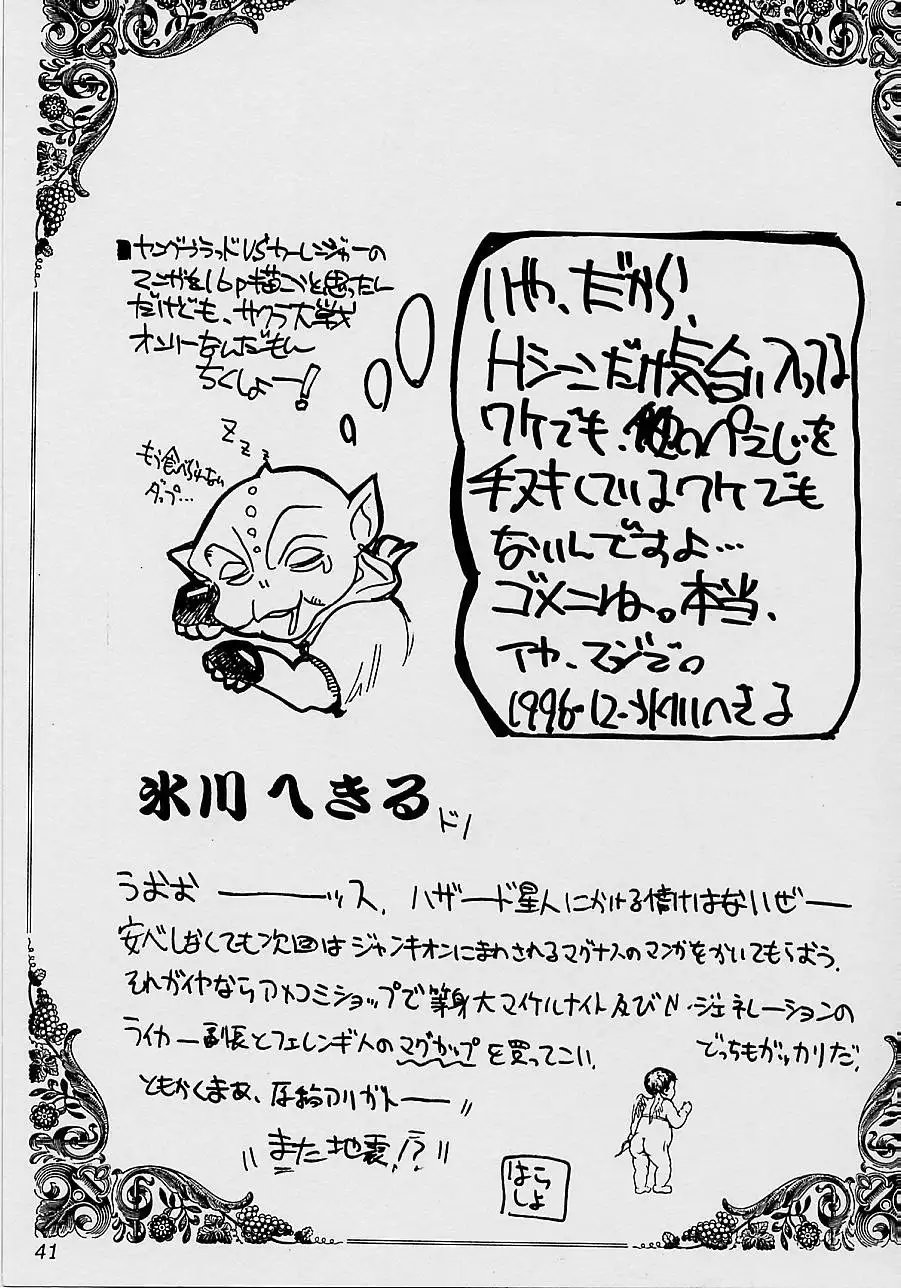 ■ヤングブラッドVSカーレンジャーの
マンガを16p描こうと思ったん
だけども、サクラ大戦
オンリーなんだもん
ちくしょー!
いや、だから、
Hシーンだけ気合い入ってる
ワケでも、他のぺえじを
手ヌキしているワケでも
ないんですよ…
ゴメンね。本当、
アヤ、マジで。
1996.12.氷川へきる
ZZZ
もう食べられない
ダップ…
氷川へきる
ドノ
うおお――――ッス、ハザード星人にかける情けはないぜ――
安べしなくても次回はジャンキオンにまわされるマグナスのマンガをかいてもらおう.
それがイヤならアメコミショップで等身大マイケルナイト及びN・ジェネレーションの
ライカー副長とフェレンギ人のマグカップを買ってこい.
どっちもガッカリだ.
ともかくまあ、アリガトー〃
〃また地震!?〃
はら
しょ
41